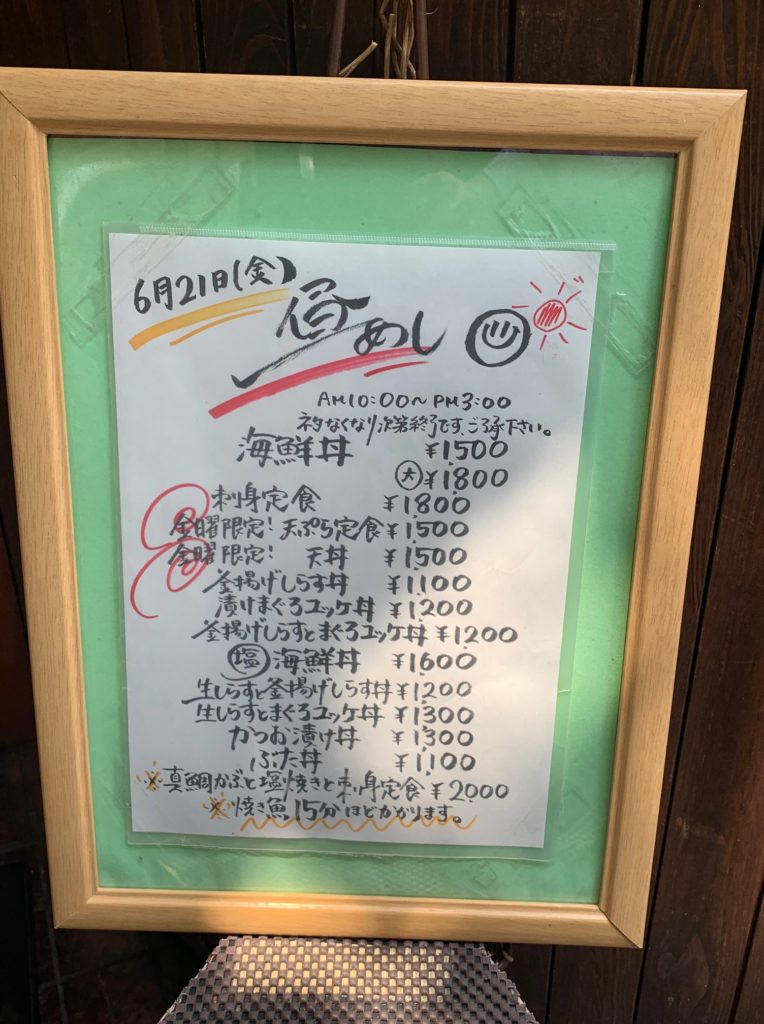 6月21日(金)
昼めし
AM10:00〜PM3:00
ネタなくなり次第終了です、ご了承下さい。
海鮮丼 ¥1500
大 ¥1800
刺身定食 ¥1800
金曜限定! 天ぷら定食 ¥1500
金曜限定! 天丼 ¥1500
釜揚げしらす丼 ¥1100
漬けまぐろユッケ丼 ¥1200
釜揚げしらすとまぐろユッケ丼 ¥1200
塩 海鮮丼 ¥1600
生しらすと釜揚げしらす丼 ¥1200
生しらすとまぐろユッケ丼 ¥1300
かつお漬け丼 ¥1300
ぶた丼 ¥1100
※真鯛かぶと塩焼きと刺身定食 ¥2000
※焼き魚、15分ほどかかります。